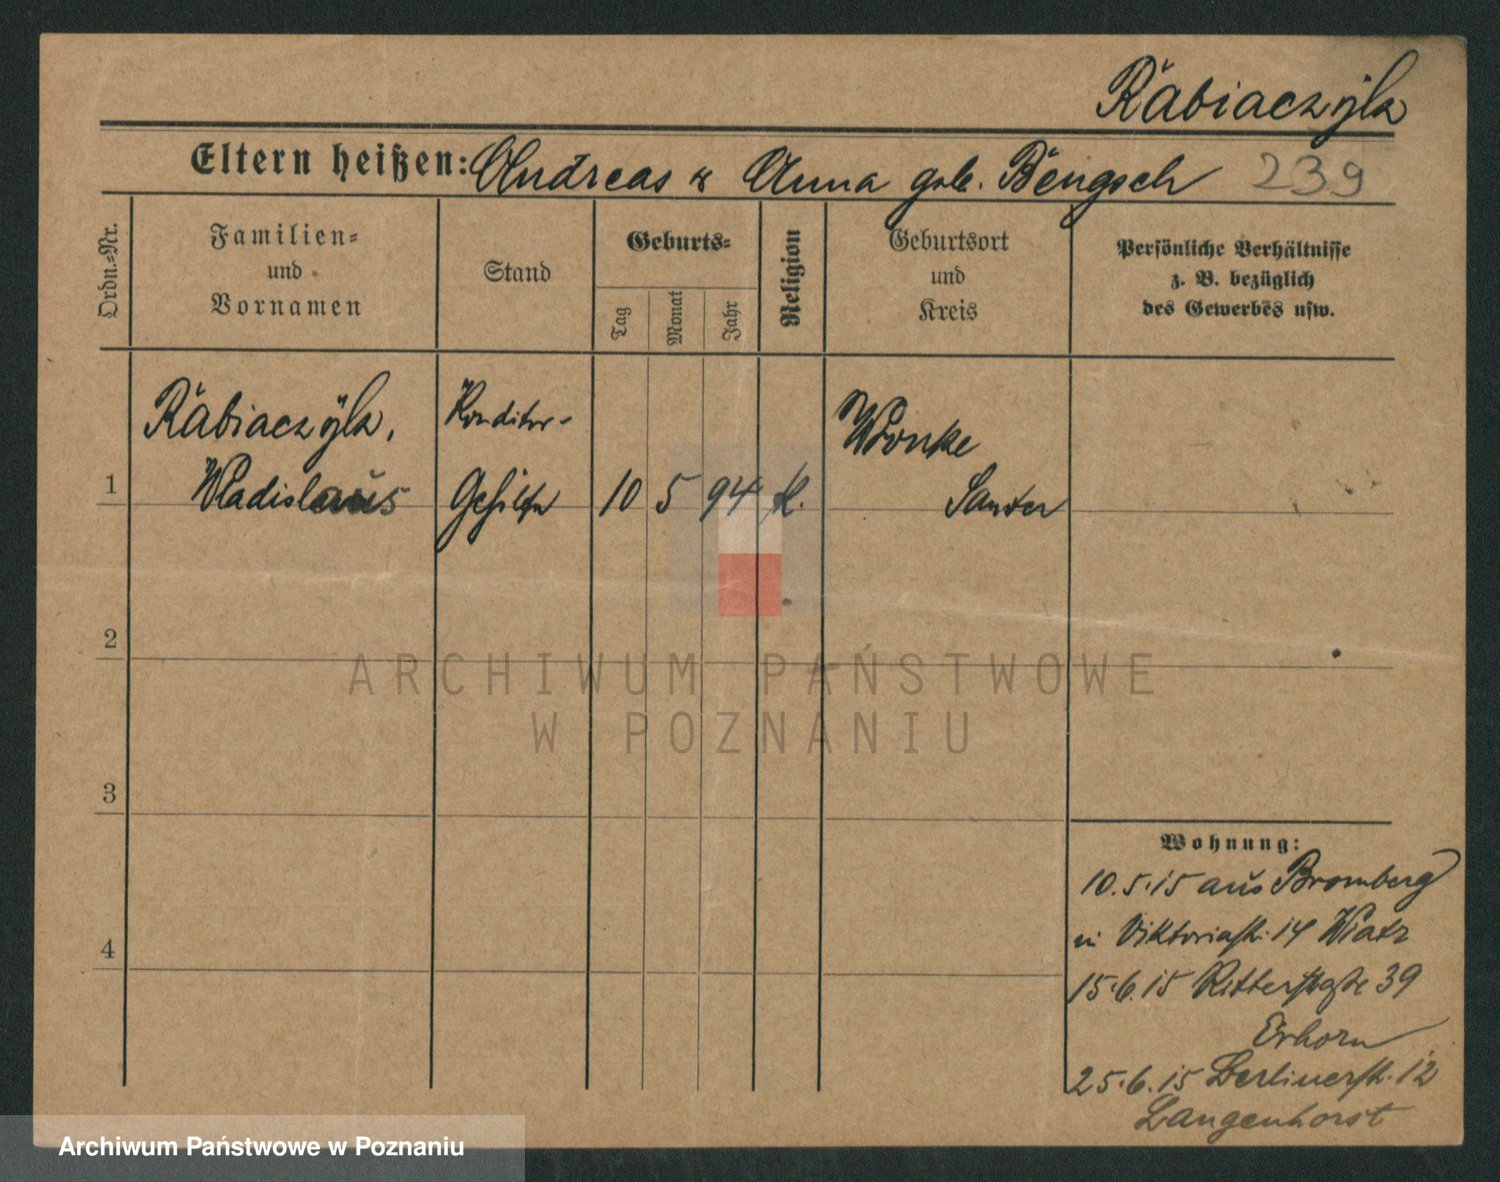 Rabiaczyk
Eltern heißen: Andreas & Anna geb. Bengsch 239
Ordn.-Nr.
Familien-
und
Vornamen
Stand
Geburts-
Tag
Monat
Jahr
Religion
Geburtsort
und
Kreis
Persönliche Verhältnisse
z. B. bezüglich
des Gewerbes usw.
Rabiaczyk,
Wladislaus
Konditor-
Gehilfe
1
10 5 94 k.
Wronke
Samter
2
3
4
ARCHIWUM PAŃSTWOWE
W POZNANIU
Wohnung:
10.5.15 aus Bromberg
in Viktoriastr. 14 Wiatr
15.6.15 Ritterstraße 39
Erhorn
25.6.15 Berlinerstr. 12
Langenhorst
Archiwum Państwowe w Poznaniu